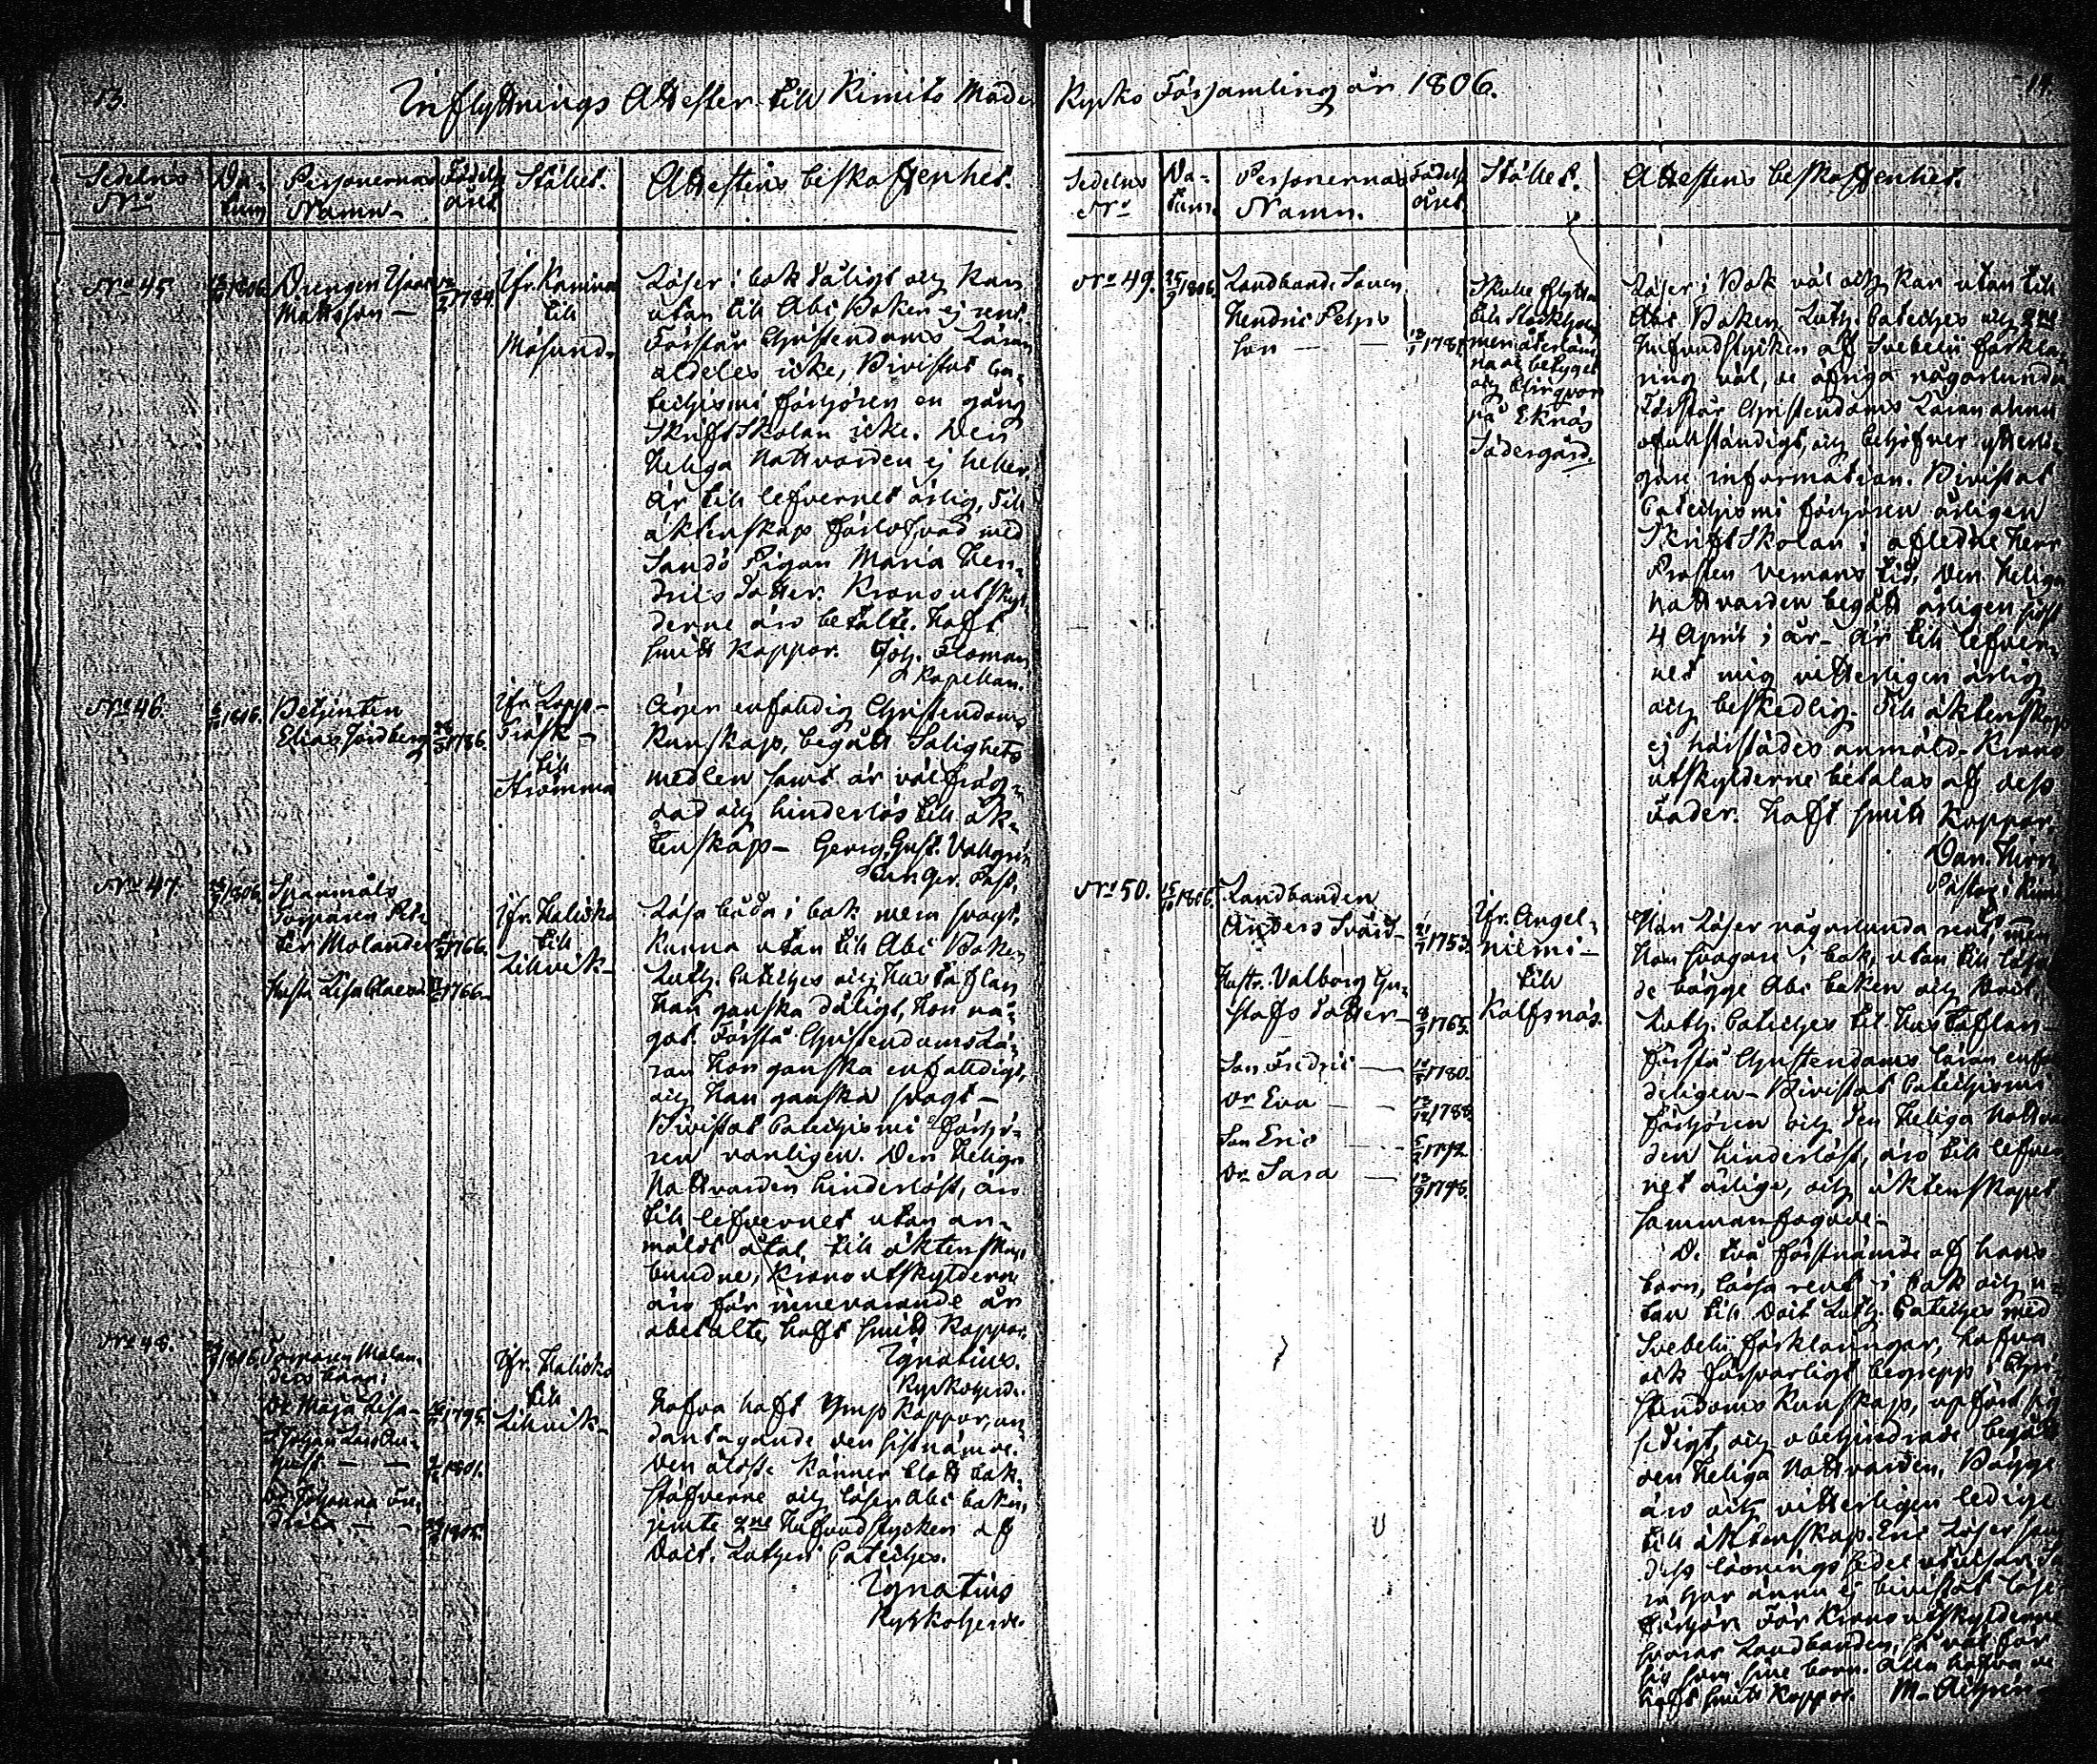 13.
Inflyttnings Attester till Kimito Moder
Sedelns No
Da-tum
Personernas Namn
Födelse året
Stället.
Attestens beskaffenhet.
No 45
1806.
Drengen Isaac
Mattsson
1784.
Ifr. Kimito
till
Mösund
Läser i bok dåligt och kan
utan till Abc Boken ej rent.
Förstår Christendoms Läran
aldeles icke, Bivistat Ca-
techismi förhören en gång
Skriftskolan icke. Den
heliga Nattvarden ej heller,
är till lefvernet ärlig, till
äktenskap förlofvad med
Sandö Pigan Maria Hen-
drics Dotter. Kronoutskyl-
derne äro betalte. Haft
smitt Koppor. Joh. Floman
Kapellan.
No 46.
1806.
Betjenten
Elias Nordberg
1786.
Ifr. Lapp-
Träsk
till
Strömma
Äger enfaldig Christendoms
Kunskap, begått Salighets
medlen samt är välfräg-
dad och hinderlös till äk-
tenskap. Georg. Gust. Vallgrén
No 47
1806.
Spanmåls
Torparen Pet-
ter Molander
1766.
Hustr. Lisa Claesd.
1766.
Ifr. Haliko
till
Lillvik
Läsa båda i bok men svagt,
kunna utan till Abc Boken
Luth. Cateches och Hustaflan
han ganska dåligt, hon nå-
got. Förstå Christendomslä-
ran hon ganska enfaldigt,
och han ganska svagt
Bivistat Catechismi förhö-
ren vanligen. Den Heliga
Nattvarden hinderlöst, äro
till lefvernet utan an-
mäldt åtal, till äktenskap
bundne, Kronoutskylderne
äro för innevarande år
obetalte, haft smitt Koppor.
Ignatius.
Kyrkoherde.
No 48.
1806
Torparen Molan-
ders barn:
Dr Maja Lisa
1795
Johanna
1801.
1805.
Ifr. Haliko
till
Lillvik
Hafva haft Ymp Koppor, un-
dantagande den sistnämde.
Den äldste känner blott bok-
stäfverne och läser Abc boken,
jemte 2ne Hufvudstycken af
Doct. Lutheri Cateches.
Ignatius
Kyrkoherde.
14.
Kyrko Församling år 1806.
Sedelns No
Da-tum.
Personernas Namn.
Födelse året
Stället.
Attestens beskaffenhet.
No 49.
1806.
Landbonde Sonen
Hendric Pehrs
son
1784
Skulle flytta
till Stockholm
men återläm-
nade betyget
och blir qvar
på Eknäs
Södergård.
Läser i Bok väl och kan utan till
Abc Boken Luth. Cateches och 2ne
Hufvudstycken af Svebelii förkla-
ring väl, de öfriga någorlunda
Förstår Christendoms Läran ännu
ofullständigt, och behöfver ytterli-
gare information. Bivistat
Catechismi förhören årligen
Skriftskolan i afledne Herr
Prosten Vemans tid, Den Heliga
Nattvarden begått årligen sist
4 April i år. Är till lefver-
net mig vitterligen ärlig
och beskedlig. Till äktenskap
ej härstädes anmäld. Krono
utskylderne betalas af dess
Fader. Haft smitt Koppor.
Dan. Hirn
Pastor i Kimi
No 50.
1806.
Landbonden
Anders Svärd
1753.
Hustr. Valborg Gu-
stafs Dotter
1765.
Son Fredric
1780.
Dr Eva
1788.
Son Eric
1792
Dr Sara
1798.
Ifr. Angel-
niemi
till
Kalfsnäs.
Han Läser någorlunda rent, men
Hon svagare i bok, utan till läsa
de bägge Abc boken och Doct.
Luth. Cateches til Hustaflan
Förstå Christendoms läran enfa
deligen. Bivistat Catechismi
förhören och den Heliga Nattvar
den hinderlöst, äro till lefver
net ärlige, och äktenskapet
sammanfogade.
De två förstnämde af hans
barn, läsa rent i bok och u-
tan till Doct. Luth. Cateches med
Svebelii förklaringar, hafva
ock försvarligt begrepp i Chri-
stendoms Kunskap, upfört sig
sedigt, och obehindrade begått
den Heliga Nattvarden. Bägge
äro och vitterligen ledige
till äktenskap. Eric Läser som
dess läsnings sedel utvisar. Sa
ra har ännu ej bivistat läse
förhör. För Kronoutskylderne
svarar Landbonden, så väl för
sig som sine barn. Alla hafva de
haft smitt Koppor.